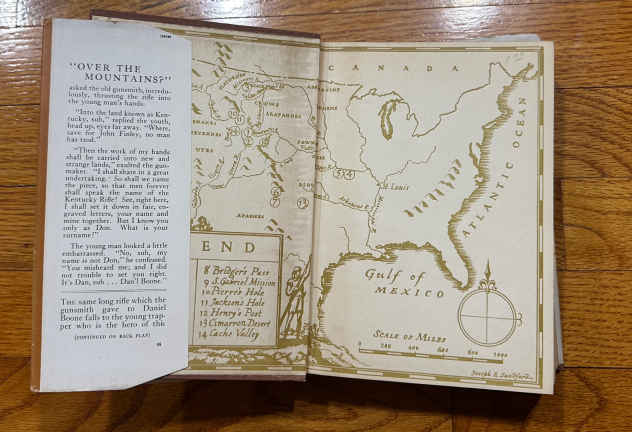 "OVER THE
MOUNTAINS?"
asked the old gunsmith, incredu-
lously, thrusting the rifle into
the young man's hands.
"Into the land known as Ken-
tucky, suh," replied the youth,
head up, eyes far away. "Where,
save for John Finley, no man
has trod."
"Then the work of my hands
shall be carried into new and
strange lands," exulted the gun-
maker. "I shall share in a great
undertaking. So shall we name
the piece, so that men forever
shall speak the name of the
Kentucky Rifle! See, right here,
I shall set it down in fair, en-
graved letters, your name and
mine together. But I know you
only as Don. What is your
surname?"
The young man looked a little
embarrassed. "No, suh, my
name is not Don," he confessed.
"You misheard me, and I did
not trouble to set you right.
It's Dan, suh . . . Dan'l Boone."
THE same long rifle which the
gunsmith gave to Daniel
Boone falls to the young trap-
per who is the hero of this
(CONTINUED ON BACK FLAP)
CANADA
CROWS
ARAPAHOES
UTES
APACHES
St Louis
Arkansas R
ATLANTIC OCEAN
Gulf of
MEXICO
END
8 Bridger's Pass
9 S. Gabriel Mission
10 Pierre's Hole
11 Jackson's Hole
12 Henry's Post
13 Cimarron Desert
14 Cache Valley
SCALE OF MILES
0 200 400 600 800 1000
Joseph E. Sandford